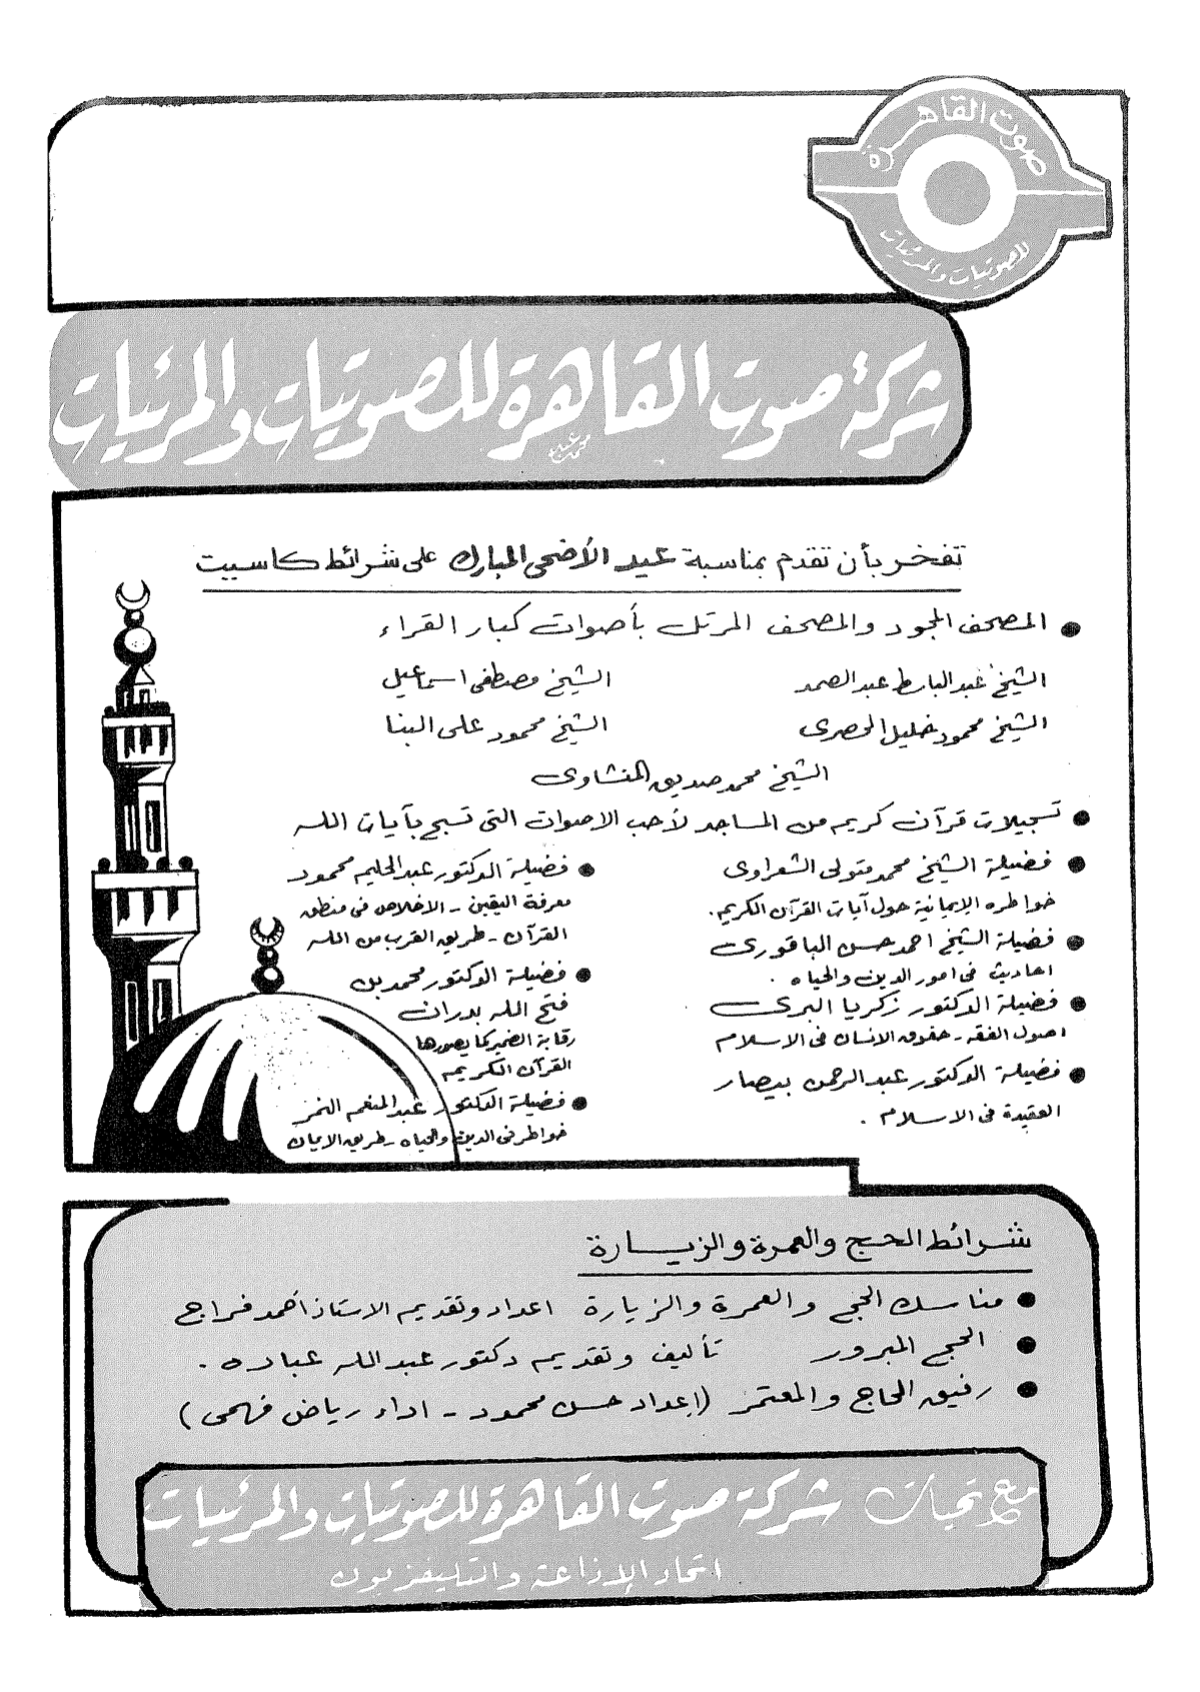 صوت القاهرة
للصوتيات والمرئيات
شركة صوت القاهرة للصوتيات والمرئيات
محمد عبده
تفخر بأن تقدم بمناسبة عيد الأضحى المبارك على شرائط كاسيت
● المصحف المجود والمصحف المرتل بأصوات كبار القراء
الشيخ عبد الباسط عبد الصمد
الشيخ مصطفى اسماعيل
الشيخ محمود خليل الحصرى
الشيخ محمود على البنا
الشيخ محمد صديق المنشاوى
● تسجيلات قرآن كريم من المساجد لأحب الاصوات التى تسبح بآيات الله
● فضيلة الشيخ محمد متولى الشعراوى
خواطره الإيمانية حول آيات القرآن الكريم.
● فضيلة الشيخ احمد حسن الباقورى
احاديث فى امور الدين والحياه .
● فضيلة الدكتور زكريا البرى
اصول الفقه - حقوق الانسان فى الاسلام
● فضيلة الدكتور عبد الرحمن بيصار
العقيدة فى الاسلام .
● فضيلة الدكتور عبد الحليم محمود
معرفة اليقين - الاخلاص فى منطق
القرآن - طريق القرب من الله
● فضيلة الدكتور محمد بن
فتح الله بدران
رقابة الضمير كما يصورها
القرآن الكريم
● فضيلة الدكتور عبد المنعم النمر
خواطر فى الدين والحياه - طريق الايمان
شرائط الحج والعمرة والزيارة
● مناسك الحج والعمرة والزيارة اعداد وتقديم الاستاذ أحمد فراج
● الحج المبرور تأليف وتقديم دكتور عبد الله عباده .
● رفيق الحاج والمعتمر (إعداد حسن محمود - اداء رياض فهمى)
مع تحيات شركة صوت القاهرة للصوتيات والمرئيات
اتحاد الإذاعة والتليفزيون